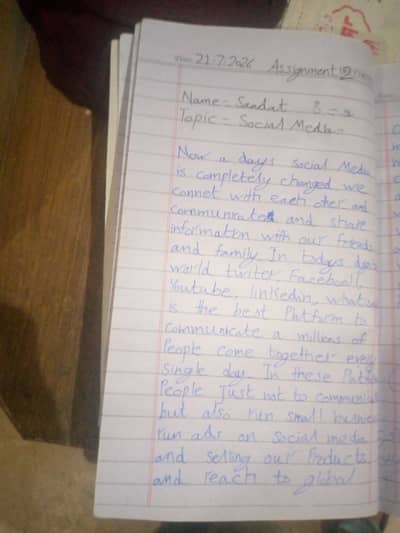 21-7-2026 Assignment 2
Name = Saadat
Topic = Social Media =
Now a days social Media
is completely changed we
connet with each other and
communicated and share
information with our friends
and family In todays days
world twiter Facebook,
Youtube, linkedin, whats
is the best Platform to
communicate a millions of
People come together every
single day. In these
People Just not to communica
but also run small busine
run ads on social media
and selling our Products
and reach to global